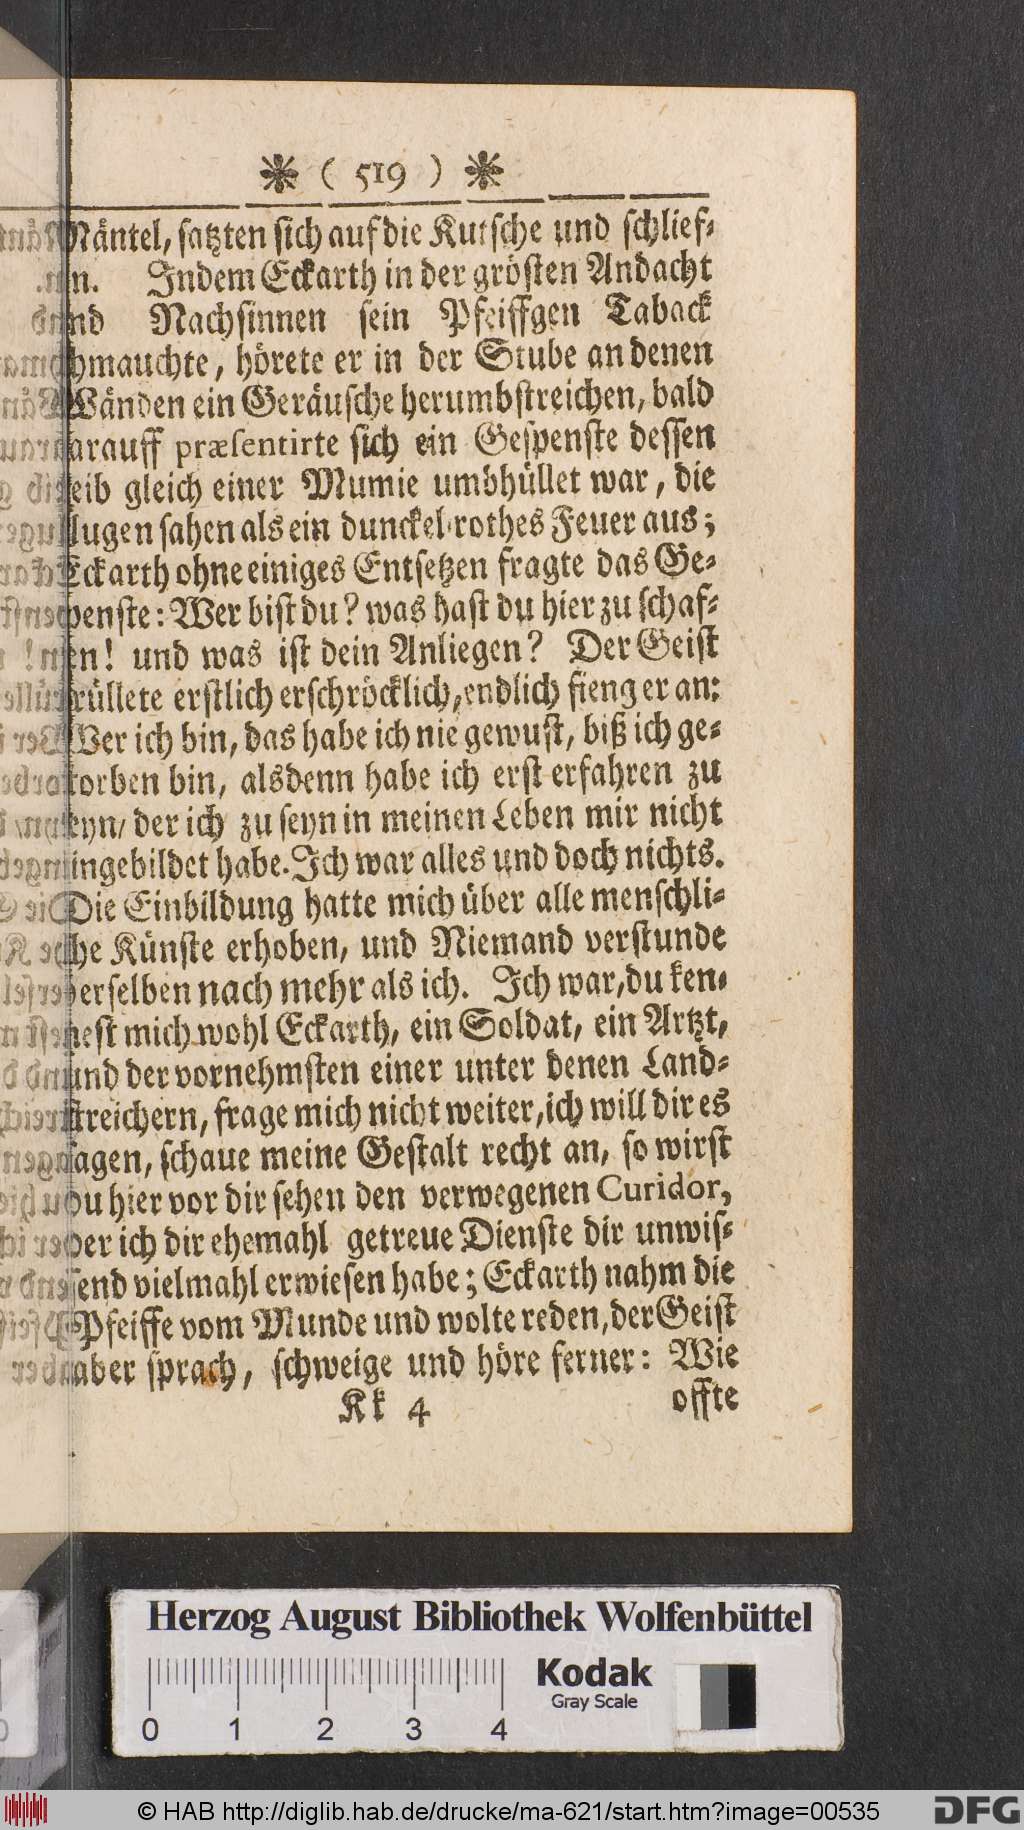 ❋ ( 519 ) ❋
Mäntel, satzten sich auf die Kutsche und schlief-
en. Indem Eckarth in der grösten Andacht
und Nachsinnen sein Pfeiffgen Taback
schmauchte, hörete er in der Stube an denen
Wänden ein Geräusche herumbstreichen, bald
darauff præsentirte sich ein Gespenste dessen
Leib gleich einer Mumie umbhüllet war, die
Augen sahen als ein dunckel-rothes Feuer aus;
Eckarth ohne einiges Entsetzen fragte das Ge-
spenste: Wer bist du? was hast du hier zu schaf-
fen! und was ist dein Anliegen? Der Geist
brüllete erstlich erschröcklich, endlich fieng er an:
Wer ich bin, das habe ich nie gewust, biß ich ge-
storben bin, alsdenn habe ich erst erfahren zu
seyn/ der ich zu seyn in meinen Leben mir nicht
eingebildet habe. Ich war alles und doch nichts.
Die Einbildung hatte mich über alle menschli-
che Künste erhoben, und Niemand verstunde
derselben nach mehr als ich. Ich war, du ken-
nest mich wohl Eckarth, ein Soldat, ein Artzt,
und der vornehmsten einer unter denen Land-
streichern, frage mich nicht weiter, ich will dir es
sagen, schaue meine Gestalt recht an, so wirst
du hier vor dir sehen den verwegenen Curidor,
der ich dir ehemahl getreue Dienste dir unwis-
send vielmahl erwiesen habe; Eckarth nahm die
Pfeiffe vom Munde und wolte reden, der Geist
aber sprach, schweige und höre ferner: Wie
Kk 4 offte
Herzog August Bibliothek Wolfenbüttel
Kodak
Gray Scale
0 1 2 3 4
© HAB http://diglib.hab.de/drucke/ma-621/start.htm?image=00535
DFG